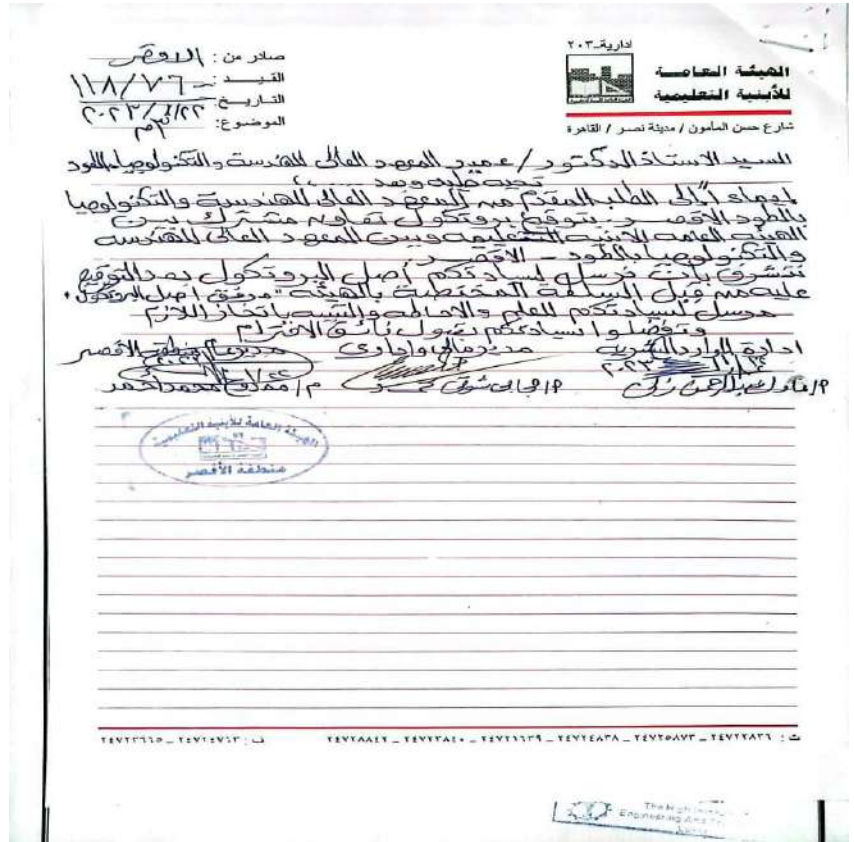 ادارية_٢٠٣
الهيئة العامة
للأبنية التعليمية
شارع حسن المأمون / مدينة نصر / القاهرة
صادر من : الاقصر
القيد : ١١٨/٧٦
التاريخ : ٢٠٢٣/١/٢٢م
الموضوع :
السيد الاستاذ الدكتور / عميد المعهد العالى للهندسة والتكنولوجيا بالطود
تحيه طيبه وبعد ،،،،،
إيماء إلى الطلب المقدم من المعهد العالى للهندسة والتكنولوجيا
بالطود الاقصر بتوقيع بروتكول تعاون مشترك بين
الهيئه العامه الابنيه التعليميه وبين المعهد العالى للهندسه
والتكنولوجيا بالطود - الاقصر
نتشرف بأن نرسل لسيادتكم أصل البروتكول بعد التوقيع
عليه من قبل السلطة المختصة بالهيئه " مرفق أصل البروتكول "
مرسل لسيادتكم للعلم والاحاطه والتنبيه باتخاذ اللازم
وتفضلوا سيادتكم بقبول فائق الاحترام
ادارة الموارد البشرية مدير مالى وادارى مدير عام منطقة الاقصر
٢٠٢٣
عبدالرحمن زكى شوقى م/ محمد احمد
الهيئة العامة للأبنية التعليمية
منطقة الأقصر
ت : ٢٤٧٢٢٨٣٦ _ ٢٤٧٢٥٨٧٣ _ ٢٤٧٢٤٨٣٨ _ ٢٤٧٢١٦٣٩ _ ٢٤٧٢٣٨٤٠ _ ٢٤٧٢٨٨٤٢ ف : ٢٤٧٢٤٧٦٣ _ ٢٤٧٢٣٦٦٥
The High
Engineering And